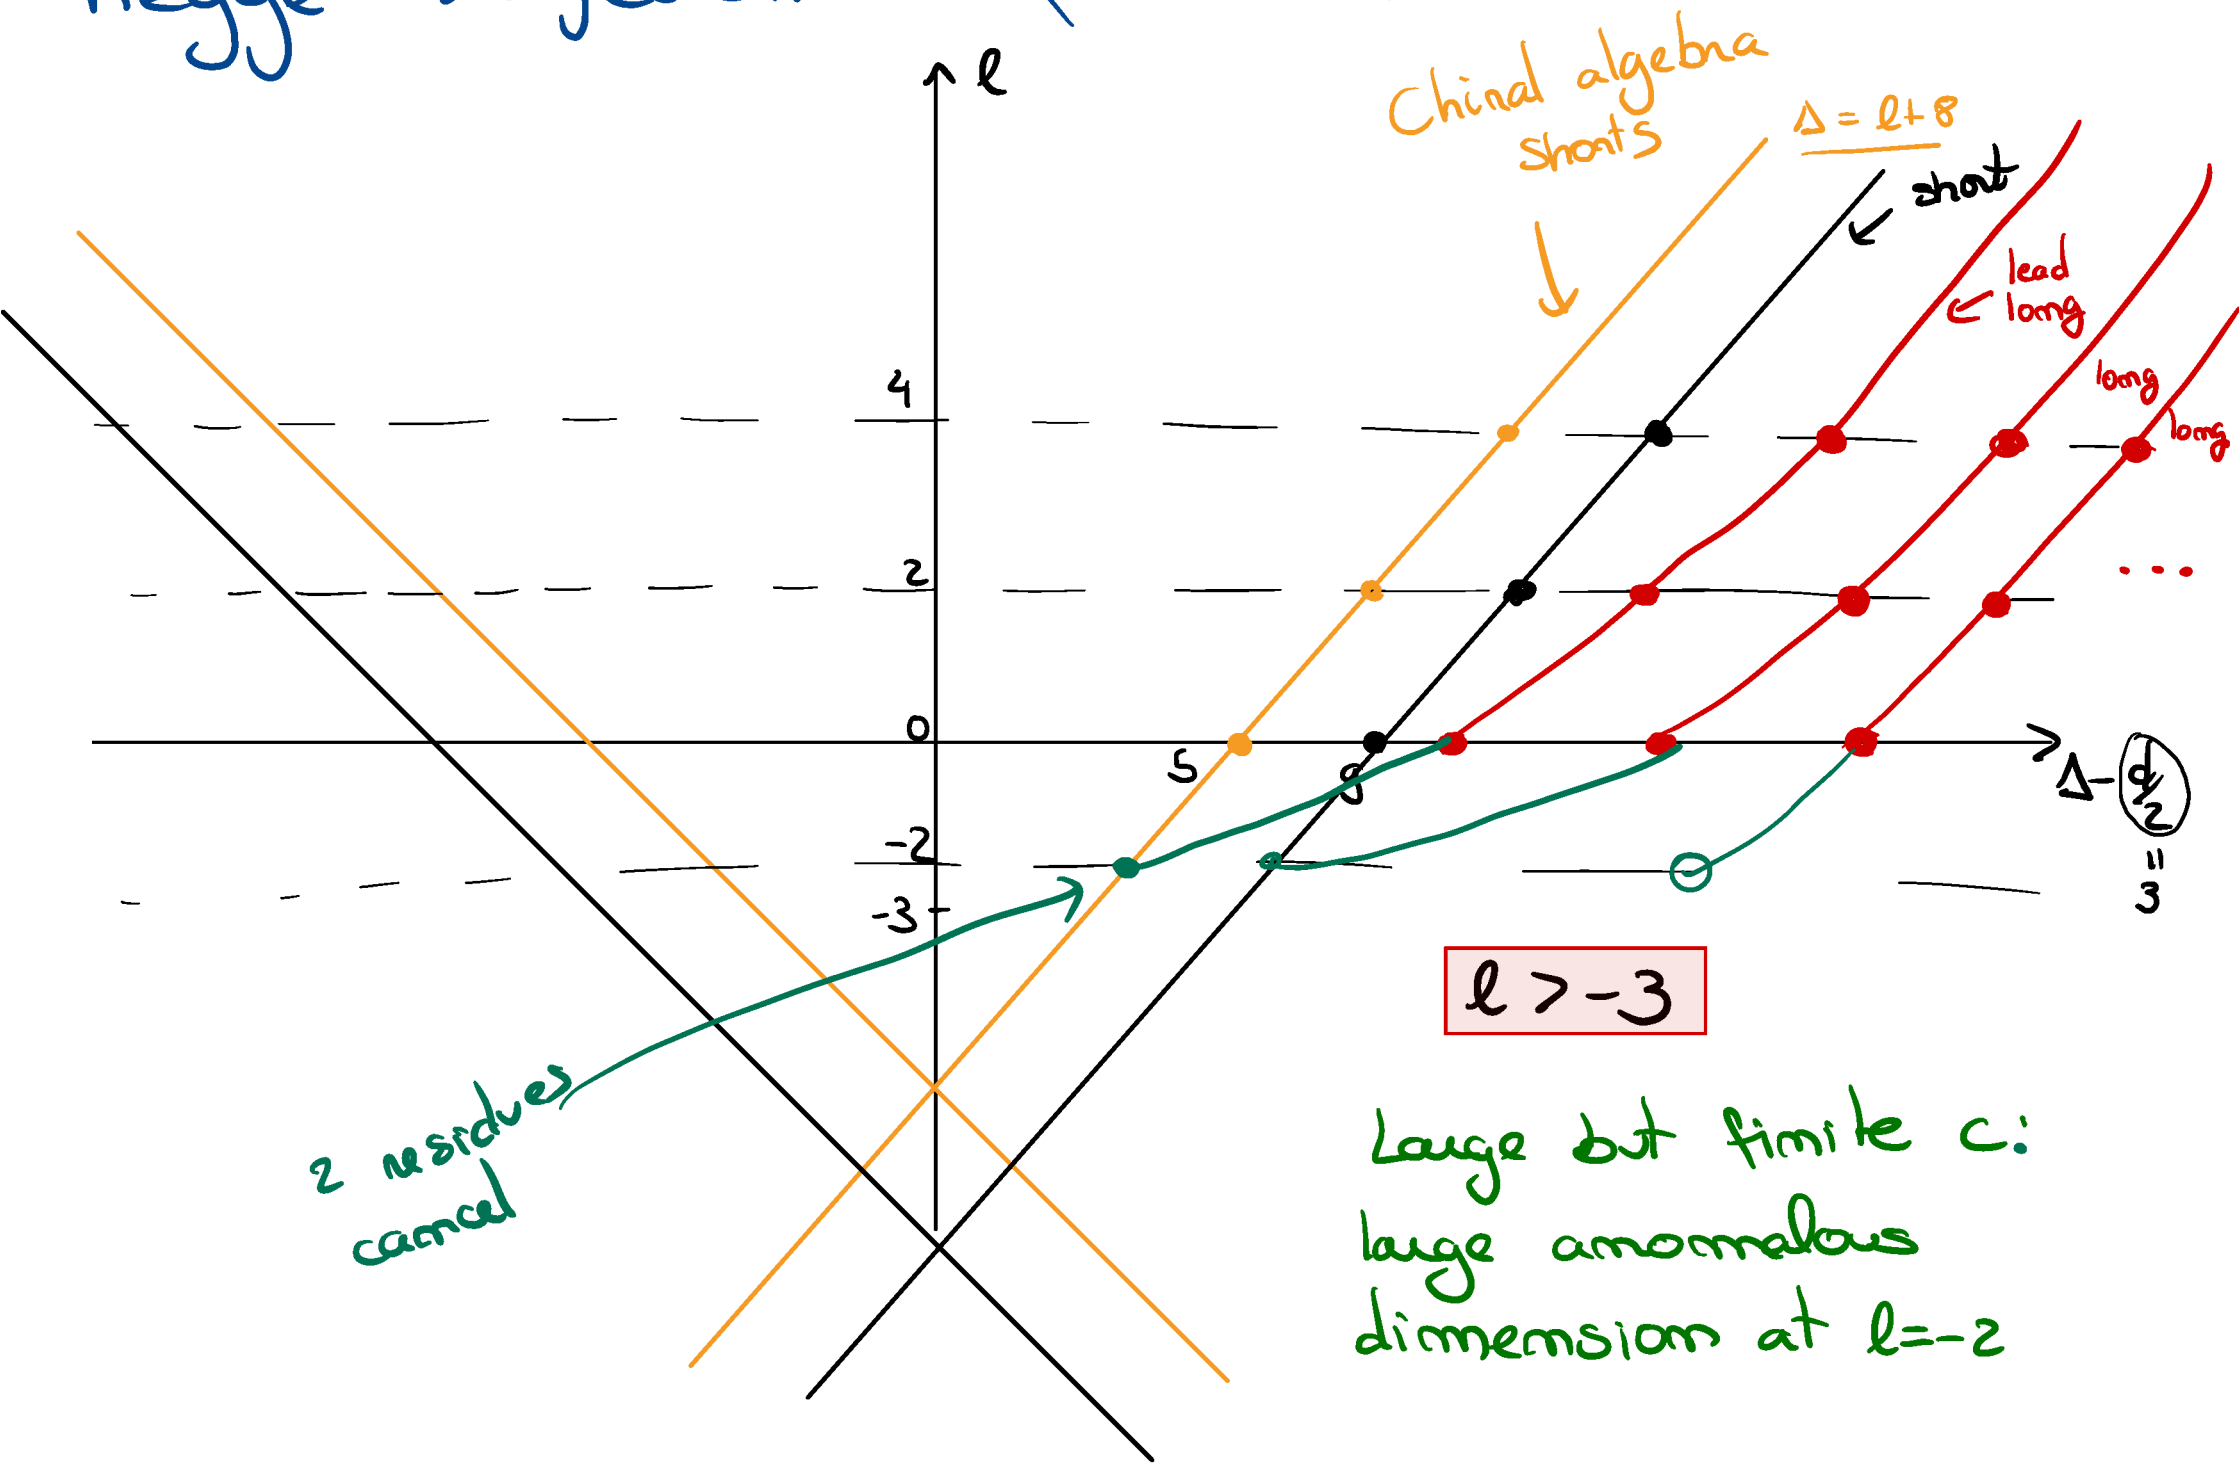 Regge
l
Chiral algebra
shorts
Δ = l+8
short
lead
long
long
long
4
2
0
5
g
-2
-3
Δ-d/2
=
3
...
l > -3
2 residues
cancel
Large but finite c:
large anomalous
dimension at l=-2